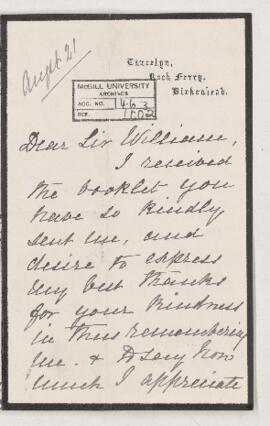 Augt 21
Rock Ferry,
Birkenhead.
McGILL UNIVERSITY
ARCHIVES
ACC. NO. 1463
REF. 1002
Dear Sir William,
I received
the booklet you
have so kindly
sent me, and
desire to express
my best thanks
for your kindness
in thus remembering
me. & to say how
much I appreciate